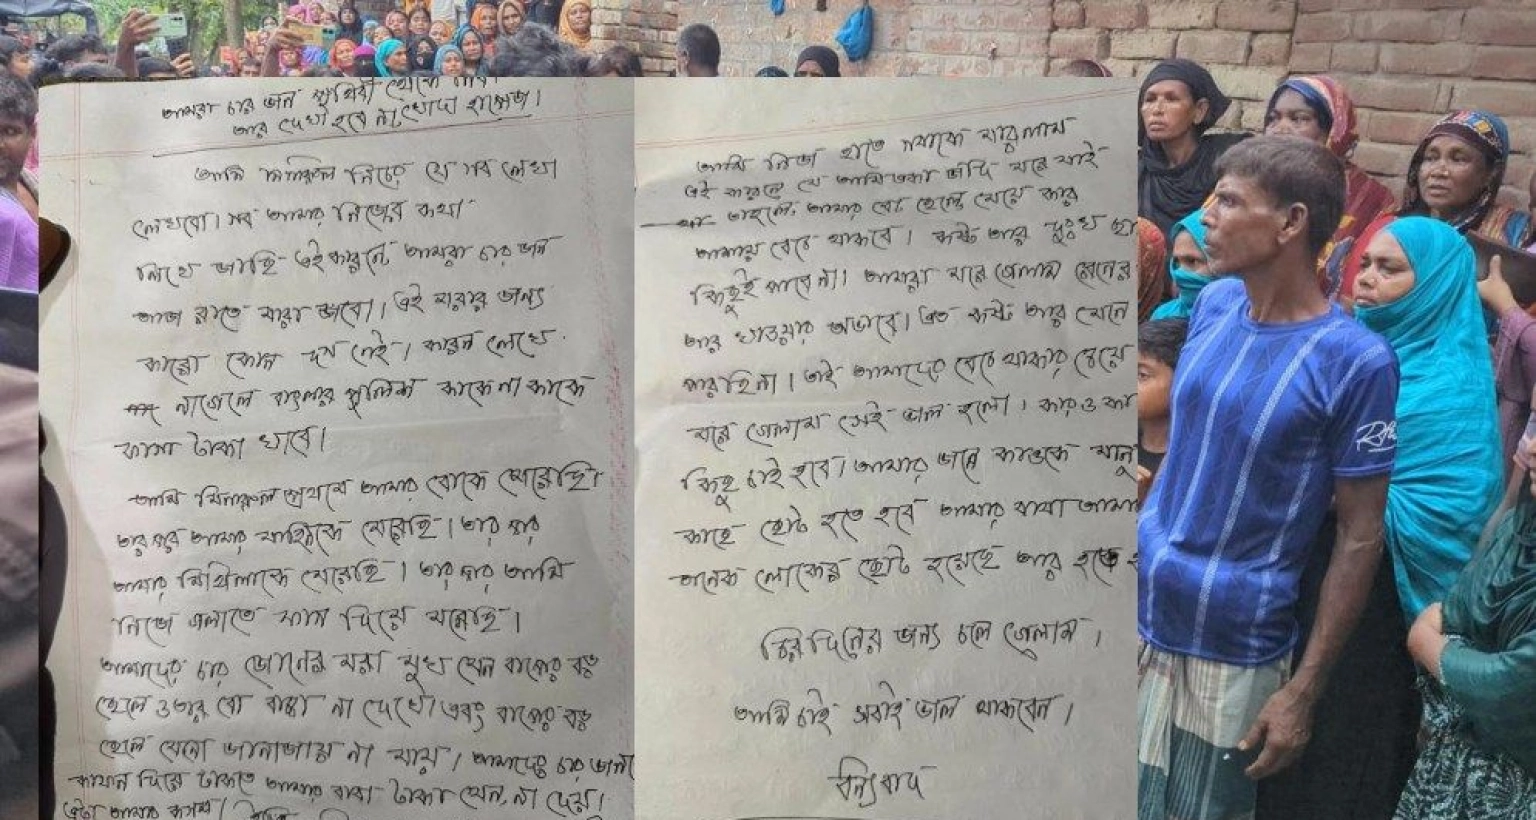 আমরা চার জন পৃথিবী থেকে
আর দেখা হবে না, খোদা হাফেজ।
আমি মিনারুল নিচের যে সব লেখা
লেখবো। সব আমার নিজের কথা
লিখে জাছি এই কারনে, আমরা চার জন
আজ রাতে মারা জাবো। এই মরার জন্য
কারো কোন দস নেই। কারন লেখে
না গেলে বাংলার পুলিশ কাকে না কাকে
ফাসা টাকা খাবে।
আমি মিনারুল প্রথমে আমার বোকে মেরেছি।
তার পর আমার মাহিনকে মেরেছি। তার পর
আমার মিথিলাকে মেরেছি। তার পর আমি
নিজে গলাতে ফাস দিয়ে মরেছি।
আমাদের চার জোনের মরা মুখ যেন বাপের বড়
ছেলে ও তার বো বাচ্চা না দেখে। এবং বাপের বড়
ছেলে যেনো জানাজায় না যায়। আমাদের চার জনকে
কাফন দিয়ে ঢাকতে আমার বাবা টাকা যেন না দেয়।
এটা আমার কসম।
আমি নিজ হাতে সবাকে মারলাম
এই কারনে যে আমি একা জদি মরে যাই
তাহলে, আমার বো ছেলে মেয়ে কার
আসায় বেচে থাকবে। কষ্ট আর দুঃখ ছা
কিছুই পাবে না। আমরা মরে গেলাম রিনের
আর খাওয়ার অভাবে। এত কষ্ট আর মেনে
পারছি না। তাই আমাদের বেচে থাকার চেয়ে
মরে গেলাম সেই ভাল হলো। কারও কা
কিছু চাই হবে। আমার জন্নে কাওকে মানু
কাছে ছোট হতে হবে আমার বাবা আমা
অনেক লোকের ছোট হয়েছে আর হতে হ
চির দিনের জন্য চলে গেলাম।
আমি চাই সবাই ভাল থাকবেন।
ধন্যবাদ